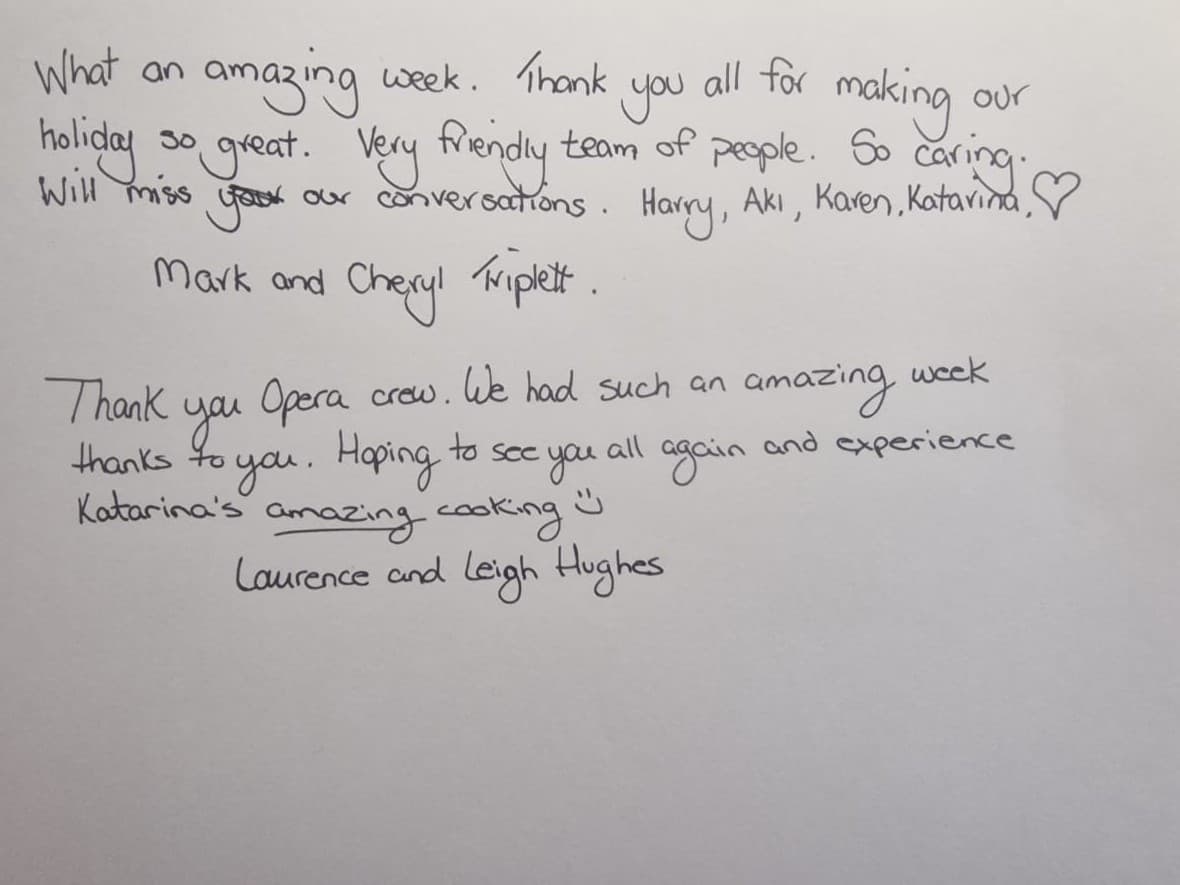 What an amazing week. Thank you all for making our
holiday so great. Very friendly team of people. So caring.
Will miss our conversations. Harry, Aki, Karen, Katarina, ♡
Mark and Cheryl Triplett.
Thank you Opera crew. We had such an amazing week
thanks to you. Hoping to see you all again and experience
Katarina's amazing cooking :)
Laurence and Leigh Hughes